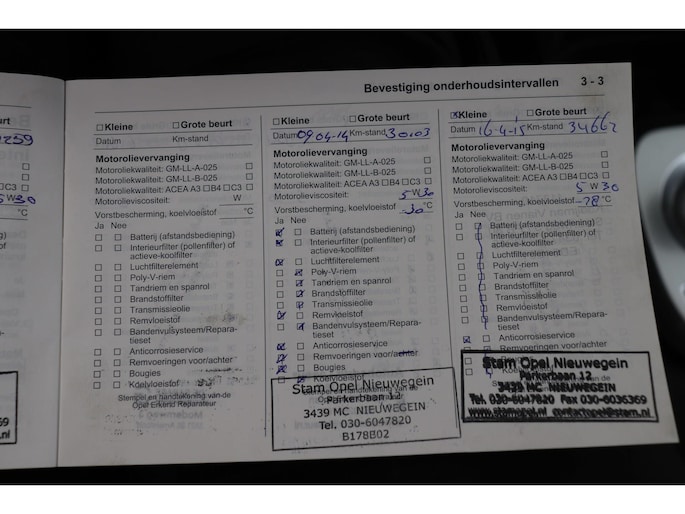 Bevestiging onderhoudsintervallen 3 - 3
eurt
259
W 30
°C
3369
.nl
Kleine Grote beurt
Datum Km-stand
Motorolievervanging
Motoroliekwaliteit: GM-LL-A-025
Motoroliekwaliteit: GM-LL-B-025
Motoroliekwaliteit: ACEA A3 B4 C3
Motorolieviscositeit: W
Vorstbescherming, koelvloeistof °C
Ja Nee
Batterij (afstandsbediening)
Interieurfilter (pollenfilter) of
actieve-koolfilter
Luchtfilterelement
Poly-V-riem
Tandriem en spanrol
Brandstoffilter
Transmissieolie
Remvloeistof
Bandenvulsysteem/Repara-
tieset
Anticorrosieservice
Remvoeringen voor/achter
Bougies
Koelvloeistof
Stempel en handtekening van de
Opel Erkend Reparateur
Kleine Grote beurt
Datum 09-04-14 Km-stand 30103
Motorolievervanging
Motoroliekwaliteit: GM-LL-A-025
Motoroliekwaliteit: GM-LL-B-025
Motoroliekwaliteit: ACEA A3 B4 C3
Motorolieviscositeit: 5 W 30
Vorstbescherming, koelvloeistof -30 °C
Ja Nee
Batterij (afstandsbediening)
Interieurfilter (pollenfilter) of
actieve-koolfilter
Luchtfilterelement
Poly-V-riem
Tandriem en spanrol
Brandstoffilter
Transmissieolie
Remvloeistof
Bandenvulsysteem/Repara-
tieset
Anticorrosieservice
Remvoeringen voor/achter
Bougies
Koelvloeistof
Stam Opel Nieuwegein
Parkerbaan 12
3439 MC NIEUWEGEIN
Tel. 030-6047820
B178B02
Kleine Grote beurt
Datum 16-4-15 Km-stand 34662
Motorolievervanging
Motoroliekwaliteit: GM-LL-A-025
Motoroliekwaliteit: GM-LL-B-025
Motoroliekwaliteit: ACEA A3 B4 C3
Motorolieviscositeit: 5 W 30
Vorstbescherming, koelvloeistof -28 °C
Ja Nee
Batterij (afstandsbediening)
Interieurfilter (pollenfilter) of
actieve-koolfilter
Luchtfilterelement
Poly-V-riem
Tandriem en spanrol
Brandstoffilter
Transmissieolie
Remvloeistof
Bandenvulsysteem/Repara-
tieset
Anticorrosieservice
Remvoeringen voor/achter
Stam Opel Nieuwegein
Parkerbaan 12
3439 MC NIEUWEGEIN
Tel. 030-6047820 Fax 030-6036369
www.stamopel.nl contactopel@stam.nl